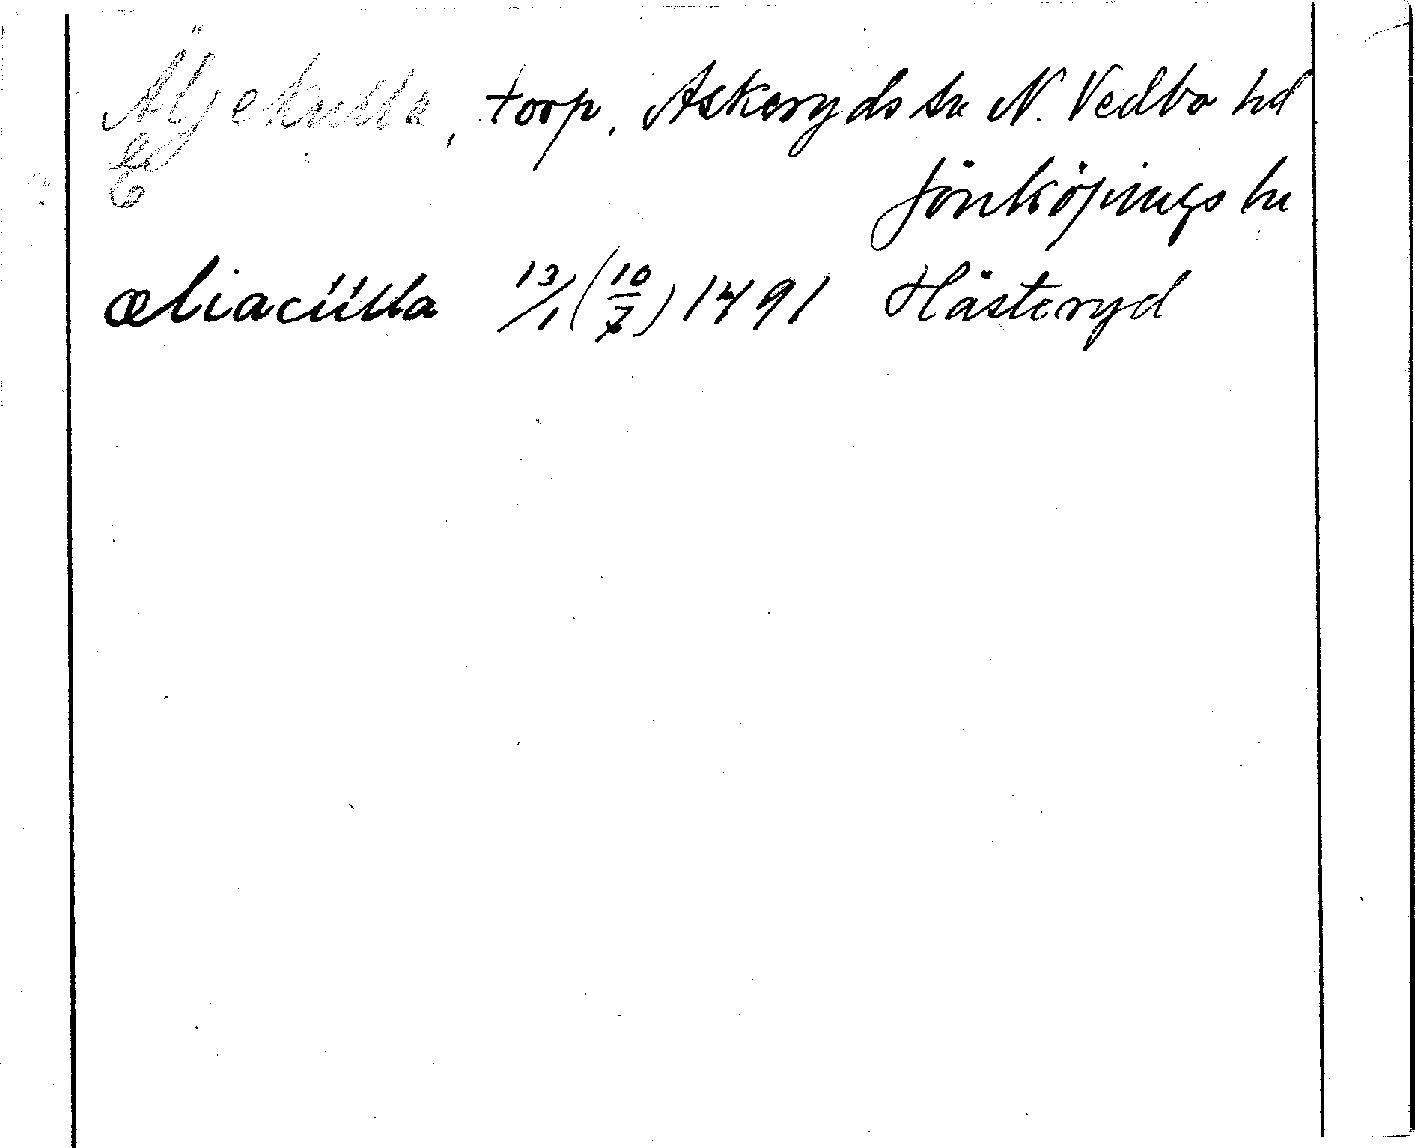 Äljekulla, torp, Askeryds sn N. Vedbo hd
E
Jönköpings ln
æliacúlla 13/1 (10/7) 1491 Hästeryd